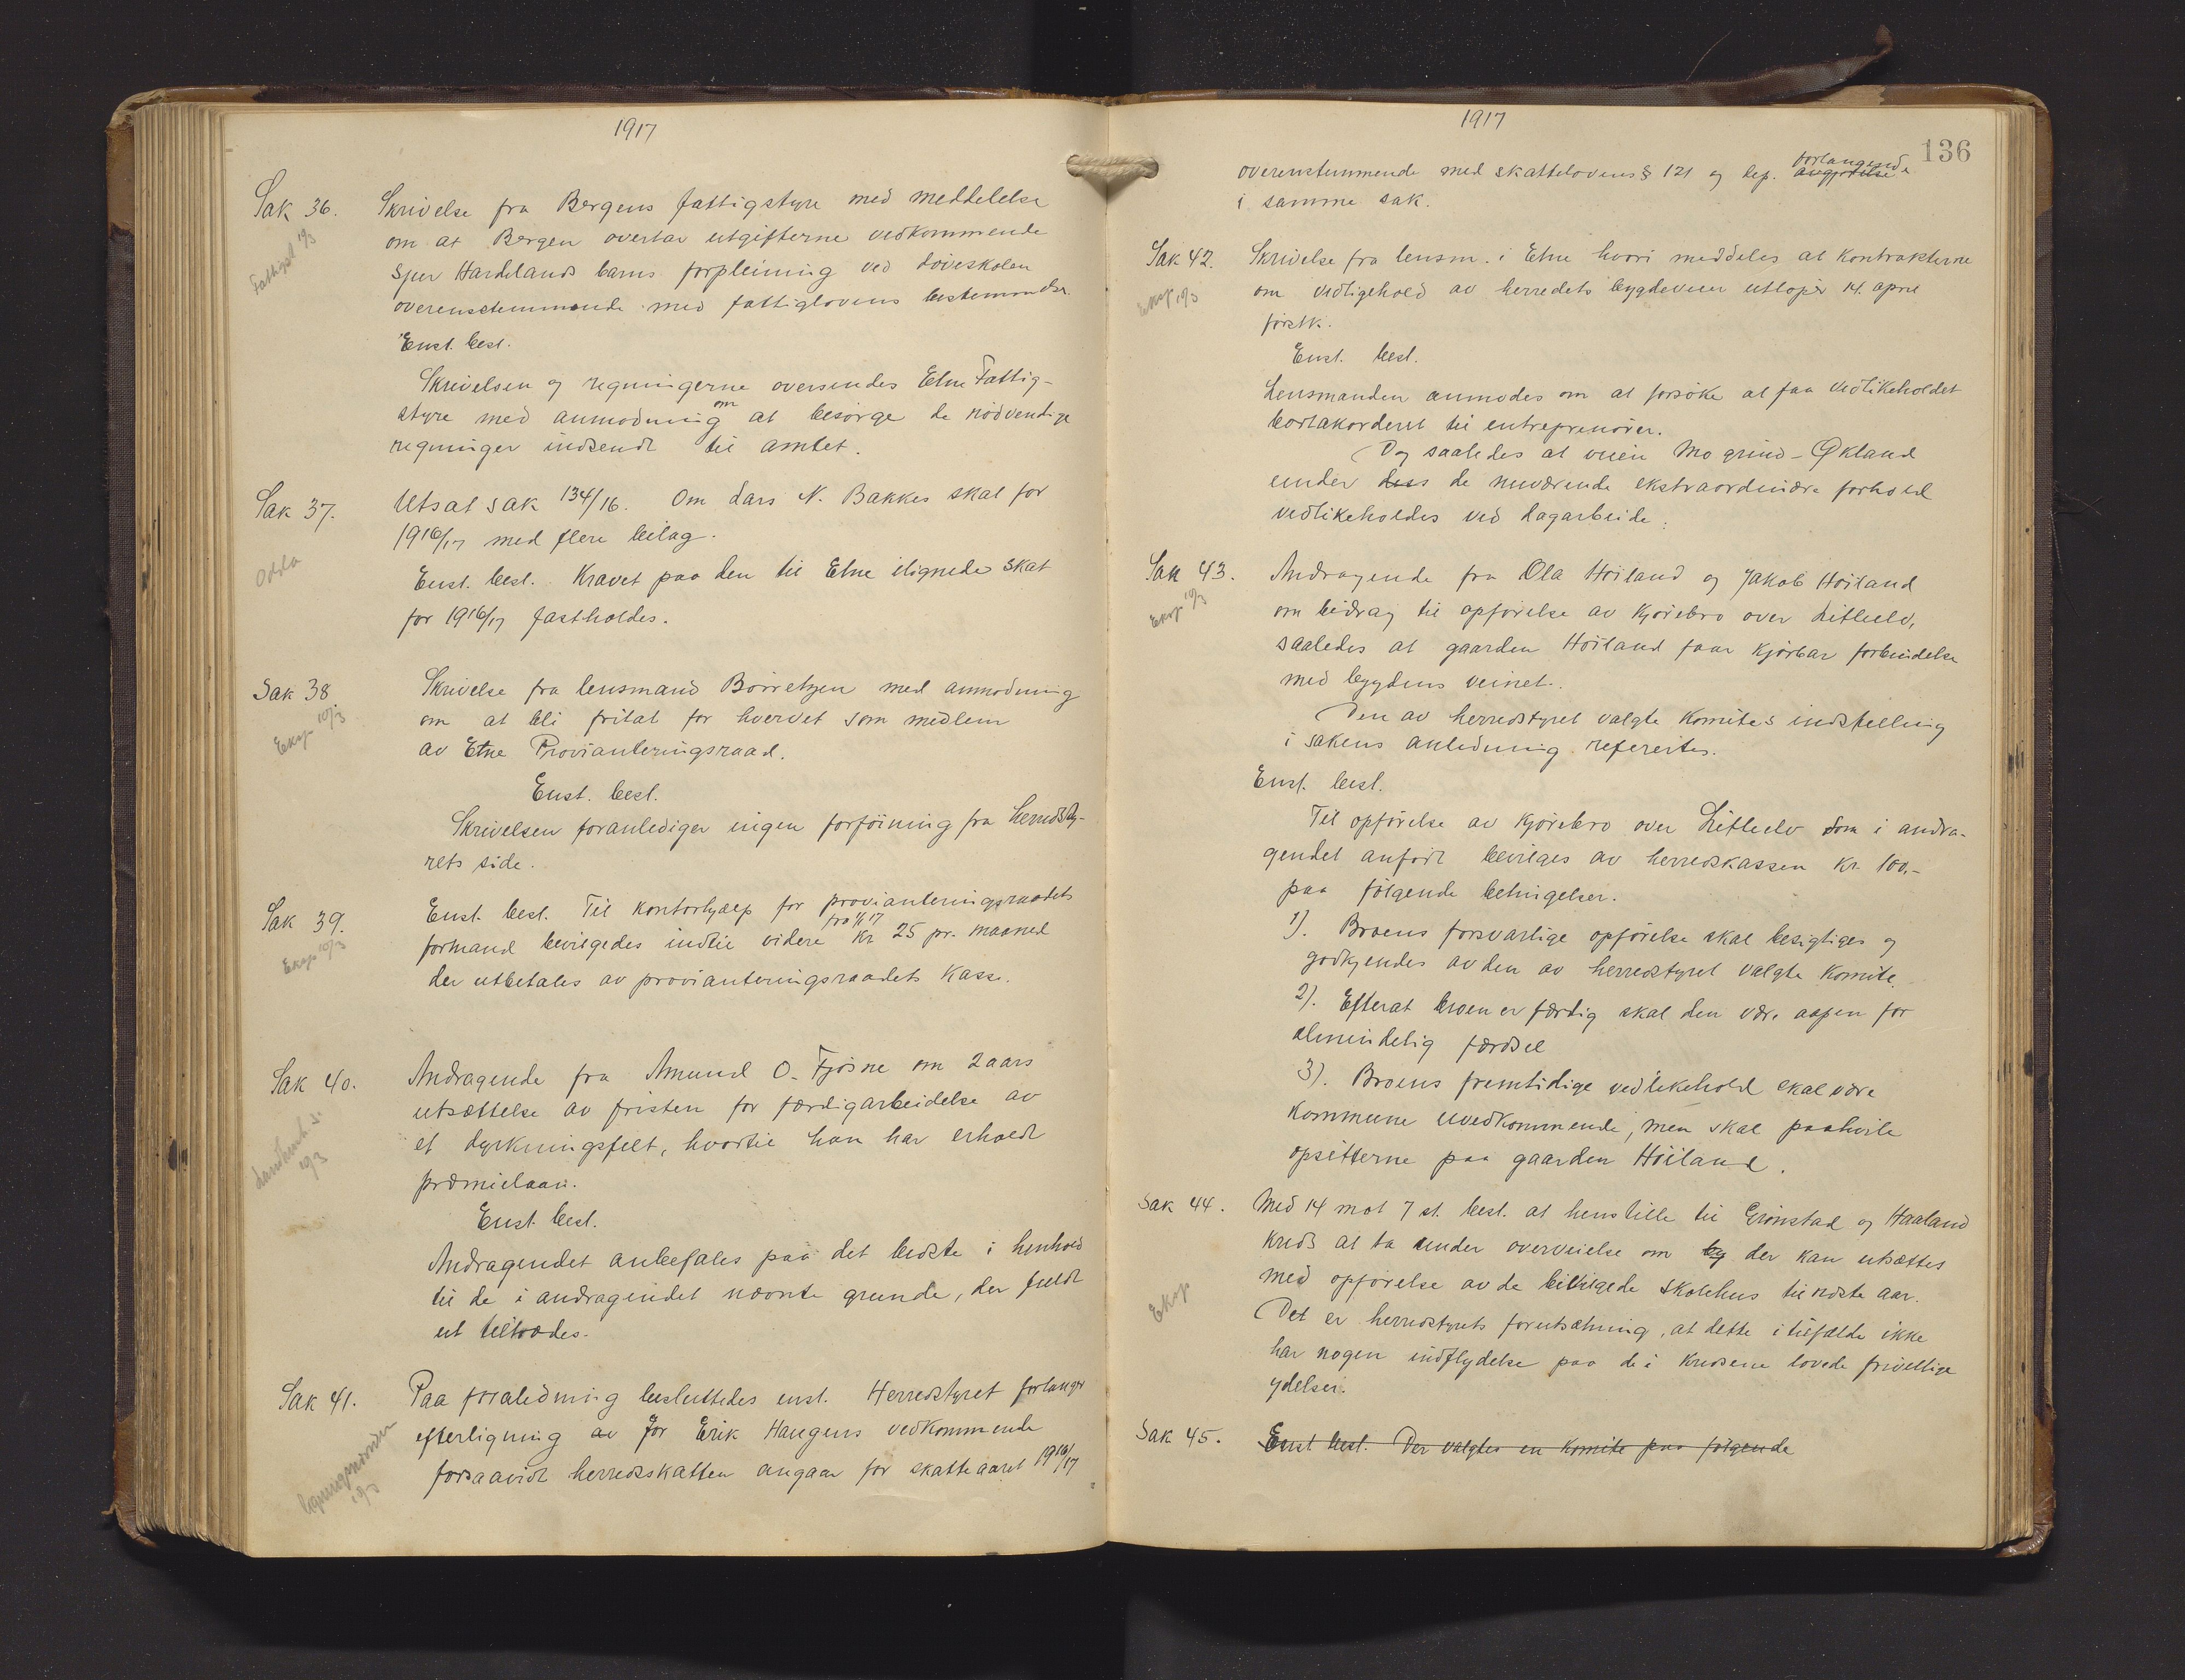 1917
Sak 36. Skrivelse fra Bergens fattigstyre med meddelelse
Fattigst 10/3
om at Bergen overtar utgifterne vedkommende
Sjur Hardelands barns forpleining ved døveskolen
overensstemmende med fattiglovens bestemmelser.
Enst. besl.
Skrivelsen og regningerne oversendes Etne Fattig-
styre med anmodning om at besørge de nødvendige
regninger indsendt til amtet.
Sak 37. Utsat sak 134/16. Om Lars N. Bakkes skat for
1916/17 med flere bilag.
Odda
Enst. besl. Kravet paa den til Etne ilignede skat
for 1916/17 fastholdes.
Sak 38. Skrivelse fra lensmand Børretzen med anmodning
Eksp 10/3
om at bli fritat for hvervet som medlem
av Etne Provianteringsraad.
Enst. besl.
Skrivelsen foranlediger ingen forføining fra herredsty-
rets side.
Sak 39. Enst. besl. Til kontorhjælp for provianteringsraadets
Eksp 10/3
formand bevilgedes indtil videre fra 1/1 17 Kr 25 pr. maaned
der utbetales av provianteringsraadets kasse.
Sak 40. Andragende fra Amund O. Fjøsne om 2 aars
utsættelse av fristen for færdigarbeidelse av
et dyrkningsfelt, hvortil han har erholdt
10/3
præmielaan.
Enst. besl.
Andragendet anbefales paa det bedste i henhold
til de i andragendet nævnte grunde, der fuldt
ut tiltrædes.
Sak 41. Paa foraledning besluttedes enst. Herredstyret forlanger
efterligning av for Erik Haugens vedkommende
forsaavidt herredsskatten angaar for skatteaaret 1916/17
10/3
1917
136
overenstemmende med skattelovens § 121 og dep. avgjørelse forlangende
i samme sak.
Sak 42. Skrivelse fra lensm. i Etne hvori meddeles at kontrakterne
Eksp 10/3
om vedligehold av herredets bygdeveier utløper 14. april
førstk.
Enst. besl.
Lensmanden anmodes om at forsøke at faa vedlikeholdet
bortakorderet til entreprenører.
Dog saaledes at veien Mo grind - Økland
under dess de nuværende ekstraordinære forhold
vedlikeholdes ved dagarbeide.
Sak 43. Andragende fra Ola Høiland og Jakob Høiland
Eksp 10/3
om bidrag til opførelse av kjørebro over Litleelv,
saaledes at gaarden Høiland faar kjørbar forbindelse
med bygdens veinet.
Den av herredstyret valgte komites indstelling
i sakens anledning refereites.
Enst. besl.
Til opførelse av kjørebro over Litleelv som i andra-
gendet anført bevilges av herredskassen Kr. 100,-
paa følgende betingelser.
1). Broens forsvarlige opførelse skal besigtiges og
godkjendes av den av herredstyret valgte komite.
2). Efterat broen er færdig skal den være aapen for
almindelig færdsel
3). Broens fremtidige vedlikehold skal være
kommune uvedkommende, men skal paahvile
opsitterne paa gaarden Høiland.
Sak 44. Med 14 mot 7 st. besl. at henstille til Grønstad og Haaland
kreds at ta under overveielse om og der kan utsættes
Eksp
med opførelse av de bevilgede skolehus til næste aar.
Det er herredstyrets forutsætning, at dette i tilfælde ikke
har nogen indflydelse paa de i kredsene lovede frivillige
ydelser.
Sak 45. Enst besl. Der valgtes en komite paa følgende